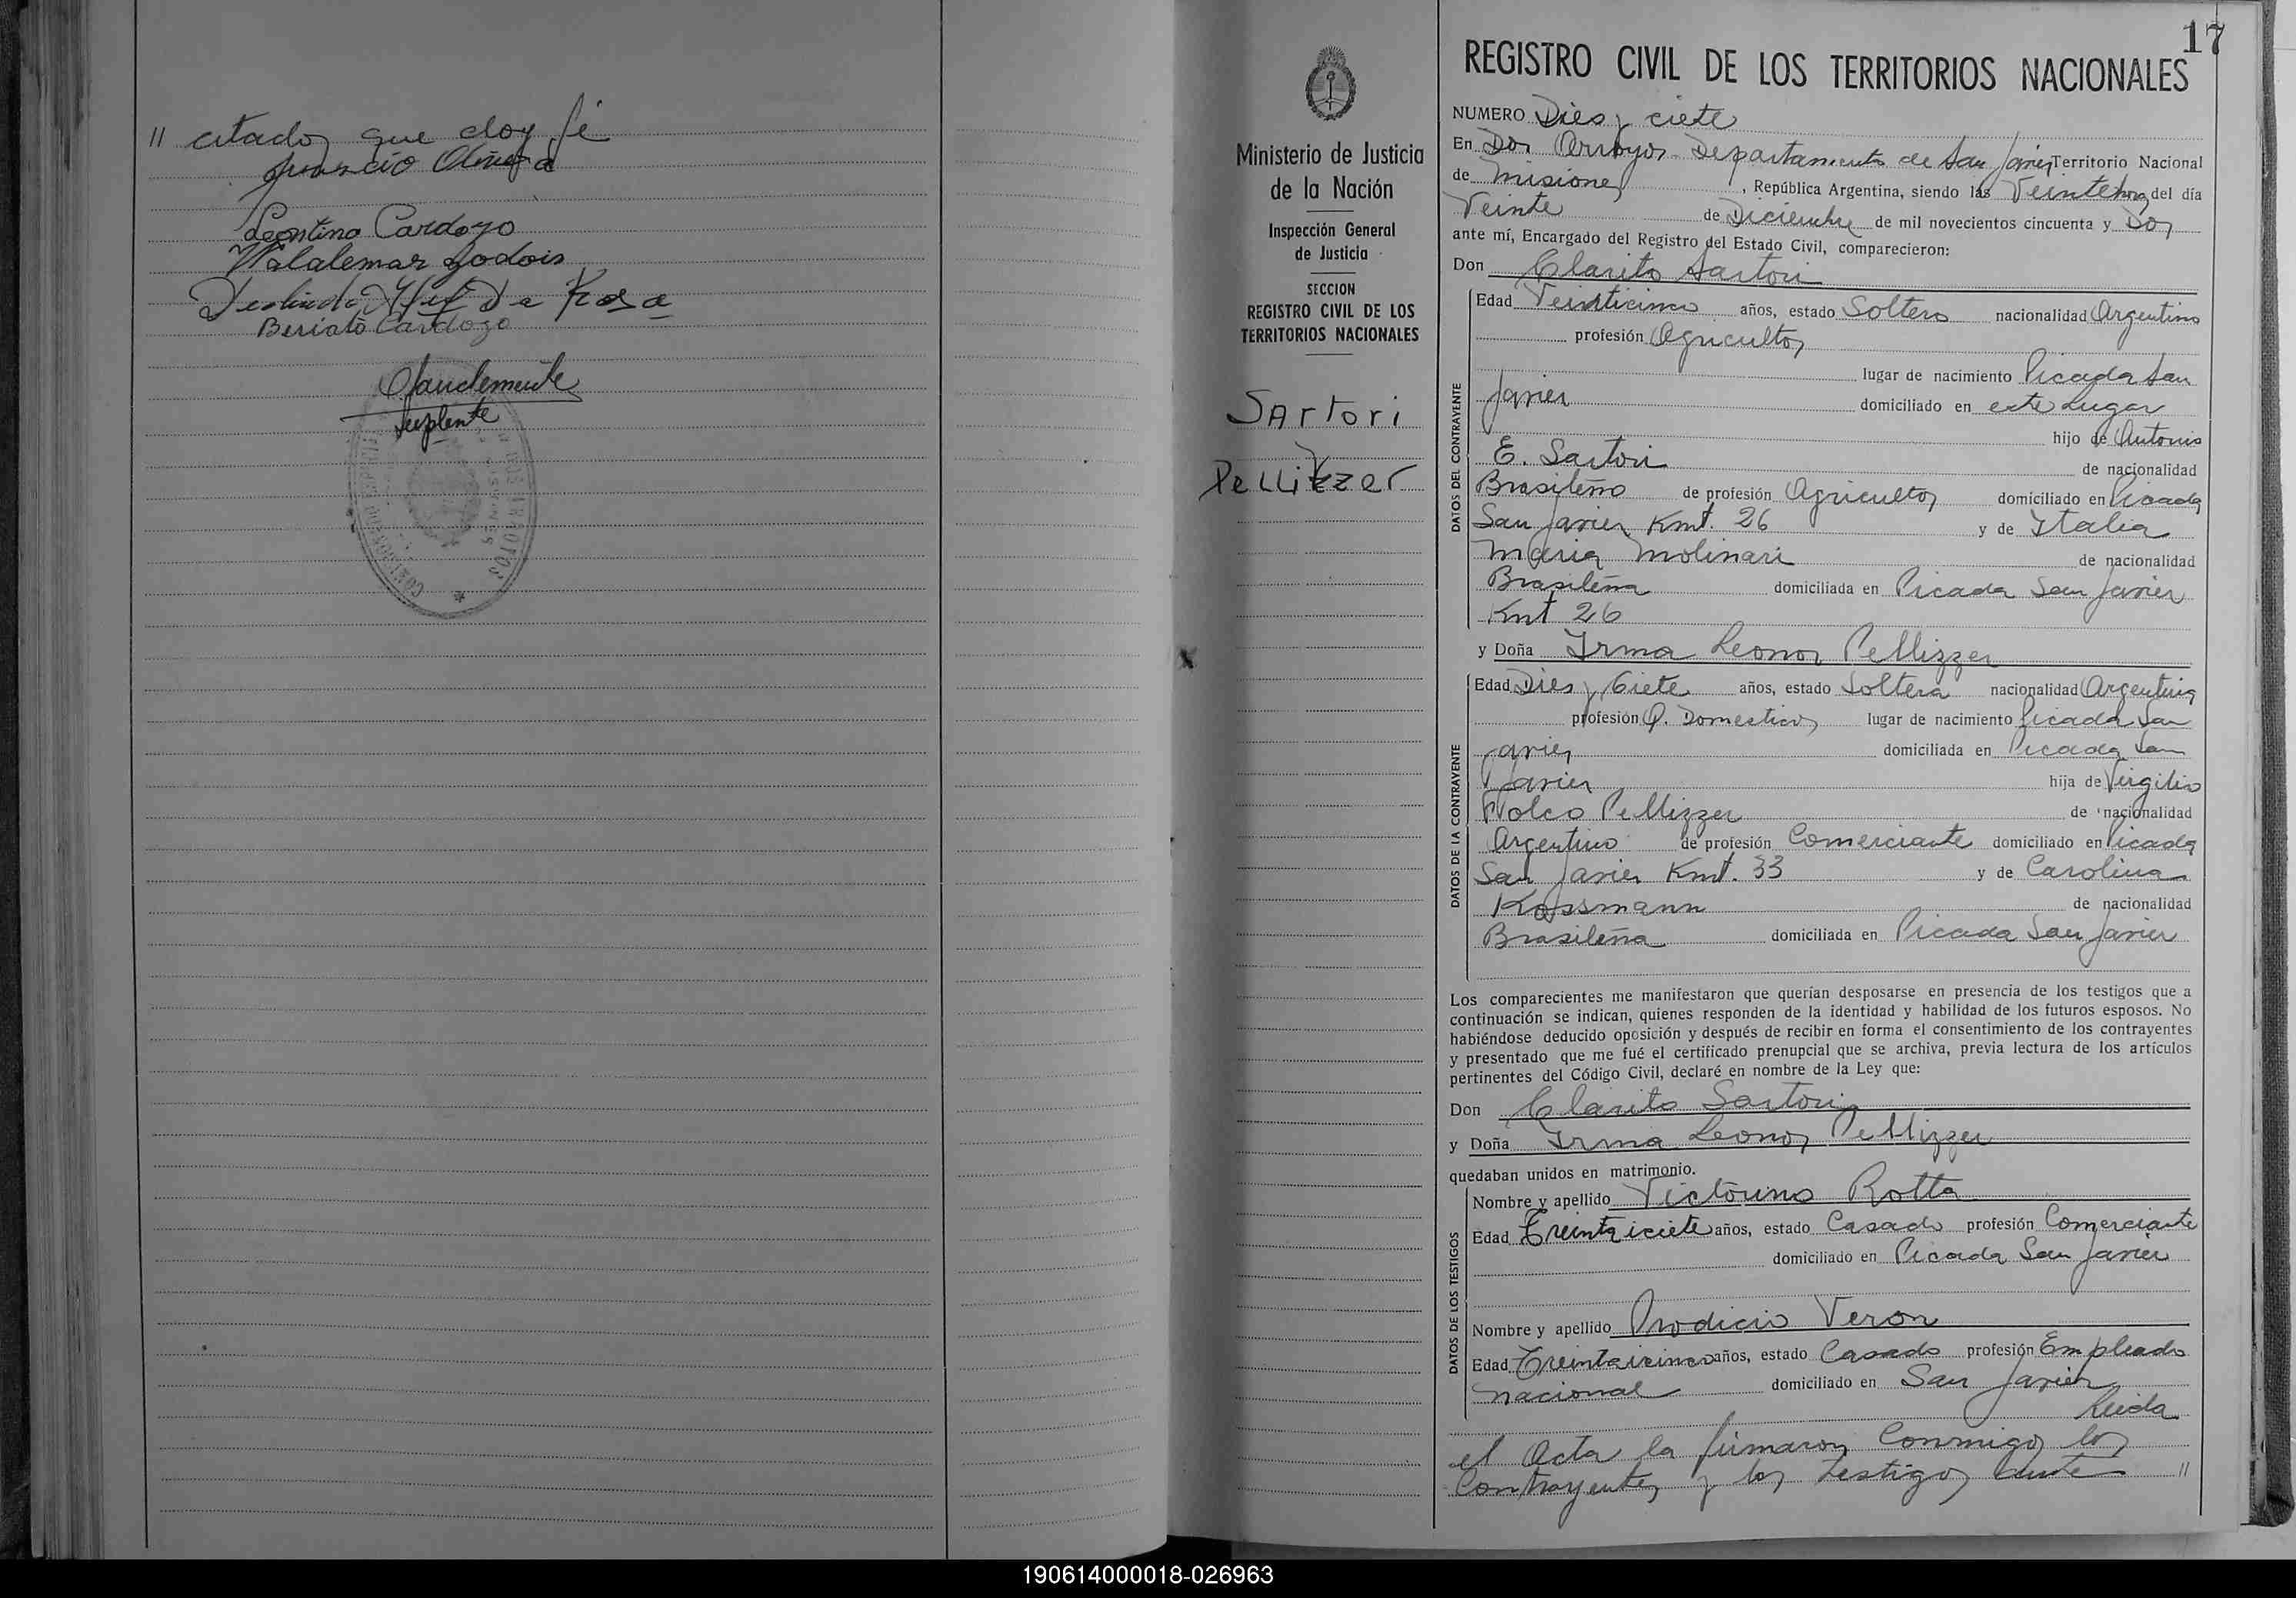 // citados que doy fé
Leontina Cardozo
Walalemar Godois
De Rosa
Beriato Cardozo
Suplente
17
REGISTRO CIVIL DE LOS TERRITORIOS NACIONALES
Ministerio de Justicia
de la Nación
Inspección General
de Justicia
SECCION
REGISTRO CIVIL DE LOS
TERRITORIOS NACIONALES
SArtori
y
PeLLizzer
NUMERO Dies y ciete
En Dos Arroyos Departamento de San Javier Territorio Nacional
de Misiones, República Argentina, siendo las Veinte horas del día
Veinte de Diciembre de mil novecientos cincuenta y Dos
ante mí, Encargado del Registro del Estado Civil, comparecieron:
Don Clarito Sartori
DATOS DEL CONTRAYENTE
Edad Veinticinco años, estado Soltero nacionalidad Argentino
profesión Agricultor
lugar de nacimiento Picada San
Javier domiciliado en este Lugar
hijo de Antonio
E. Sartori de nacionalidad
Brasileño de profesión Agricultor domiciliado en Picada
San Javier Kmt. 26 y de Italia
Maria Molinari de nacionalidad
Brasileña domiciliada en Picada San Javier
Kmt 26
y Doña Irma Leonor Pellizzer
DATOS DE LA CONTRAYENTE
Edad Dies y Ciete años, estado Soltera nacionalidad Argentina
profesión Q. Domesticos lugar de nacimiento Picada San
Javier domiciliada en Picada San
Javier hija de Virgilio
Polco Pellizzer de nacionalidad
Argentino de profesión Comerciante domiciliado en Picada
San Javier Kmt. 33 y de Carolina
Kossmann de nacionalidad
Brasileña domiciliada en Picada San Javier
Los comparecientes me manifestaron que querían desposarse en presencia de los testigos que a
continuación se indican, quienes responden de la identidad y habilidad de los futuros esposos. No
habiéndose deducido oposición y después de recibir en forma el consentimiento de los contrayentes
y presentado que me fué el certificado prenupcial que se archiva, previa lectura de los artículos
pertinentes del Código Civil, declaré en nombre de la Ley que:
Don Clarito Sartori
y Doña Irma Leonor Pellizzer
quedaban unidos en matrimonio.
DATOS DE LOS TESTIGOS
Nombre y apellido Victorino Rotta
Edad Treintaiciete años, estado Casado profesión Comerciante
domiciliado en Picada San Javier
Nombre y apellido Prodicio Veron
Edad Treintaicinco años, estado Casado profesión Empleado
Nacional domiciliado en San Javier
Leida
el Acta la firmaron Conmigo los
Contrayentes y los testigos ante //
190614000018-026963